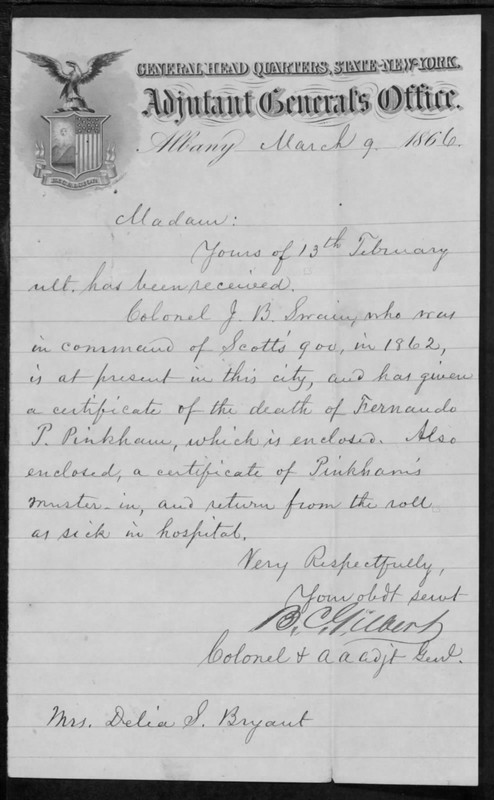 GENERAL HEAD QUARTERS, STATE-NEW-YORK.
Adjutant General's Office.
Albany March 9. 1866.
EXCELSIOR
Madam:
Yours of 13th February
ult. has been received.
Colonel J. B. Swain, who was
in command of Scott's 900, in 1862,
is at present in this city, and has given
a certificate of the death of Fernando
P. Pinkham, which is enclosed. Also
enclosed, a certificate of Pinkham's
muster-in, and return from the roll
as sick in hospital.
Very Respectfully,
Your obdt servt
B. C. Gilbert
Colonel & A A Adjt Genl.
Mrs. Delia S. Bryant